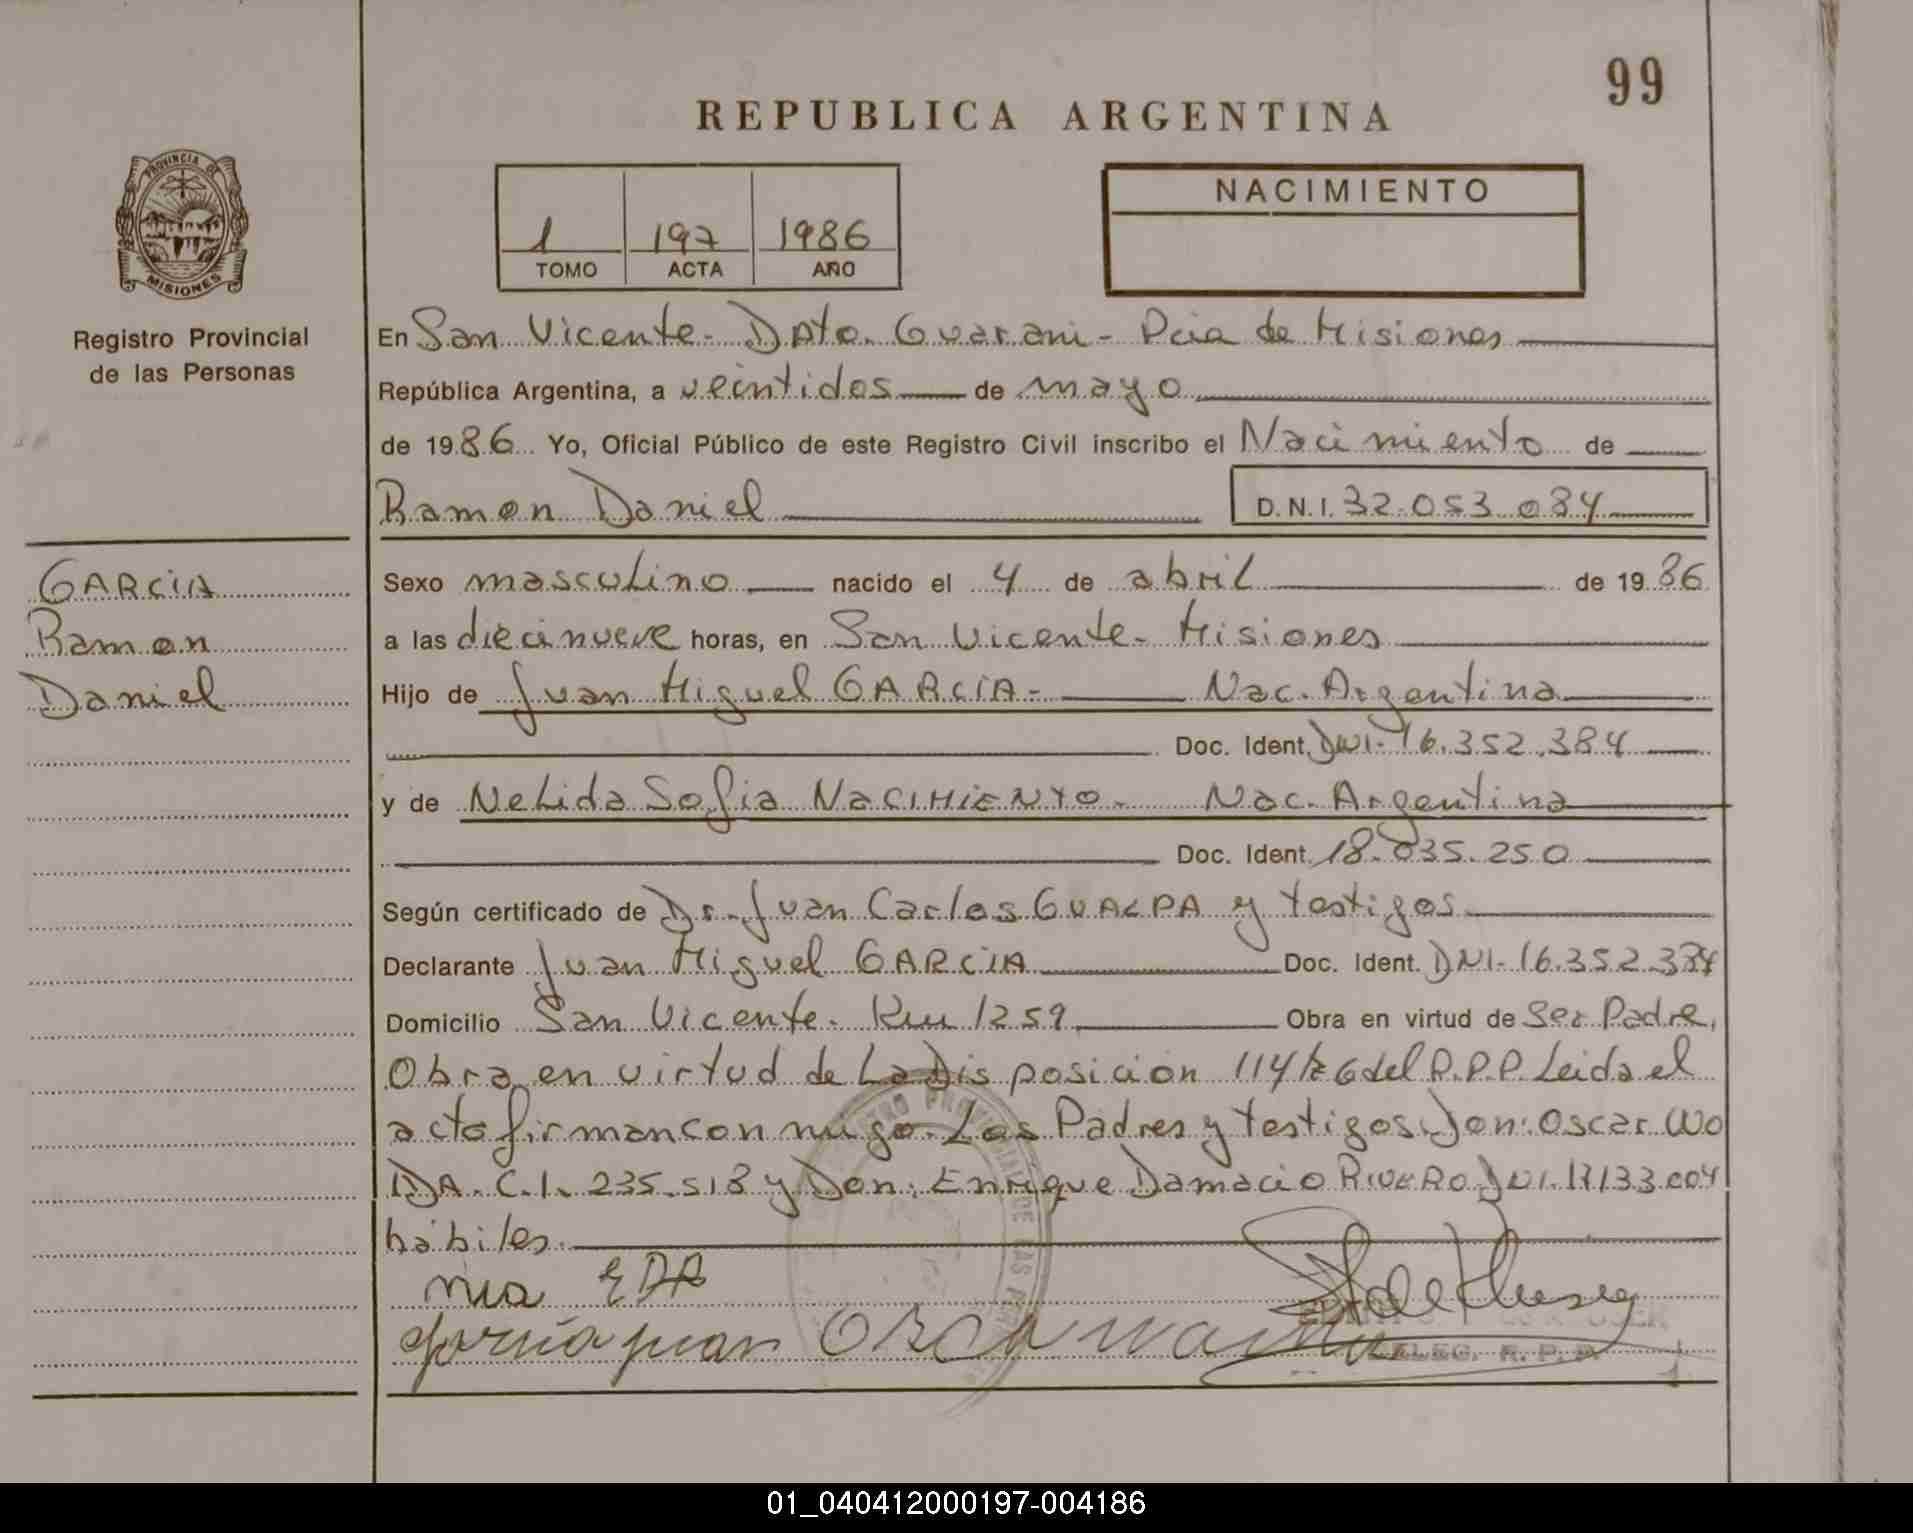 99
REPUBLICA ARGENTINA
PROVINCIA DE
MISIONES
Registro Provincial
de las Personas
1 197 1986
TOMO ACTA AÑO
NACIMIENTO
En San Vicente - Dpto. Guarani - Pcia de Misiones
República Argentina, a veintidos de mayo
de 1986 Yo, Oficial Público de este Registro Civil inscribo el Nacimiento de
Ramon Daniel D.N.I. 32.053.084
GARCIA
Ramon
Daniel
Sexo masculino nacido el 4 de abril de 1986
a las diecinueve horas, en San Vicente - Misiones
Hijo de Juan Miguel GARCIA - Nac. Argentina
Doc. Ident. DNI - 16.352.384
y de Nelida Sofia NACIMIENTO - Nac. Argentina
Doc. Ident. 18.035.250
Según certificado de Dr. Juan Carlos GUALPA y testigos
Declarante Juan Miguel GARCIA Doc. Ident. DNI - 16.352.384
Domicilio San Vicente - Km 1259 Obra en virtud de Ser Padre,
Obra en virtud de La Disposición 114/76 del R.P.P. Leida el
acto firman conmigo Los Padres y testigos Don: Oscar WO
DA. C.I. 235.518 y Don: Enrique Damacio RIVERO DNI. 17.133.004
hábiles.
juan
DELEG. R. P. P.
01_040412000197-004186